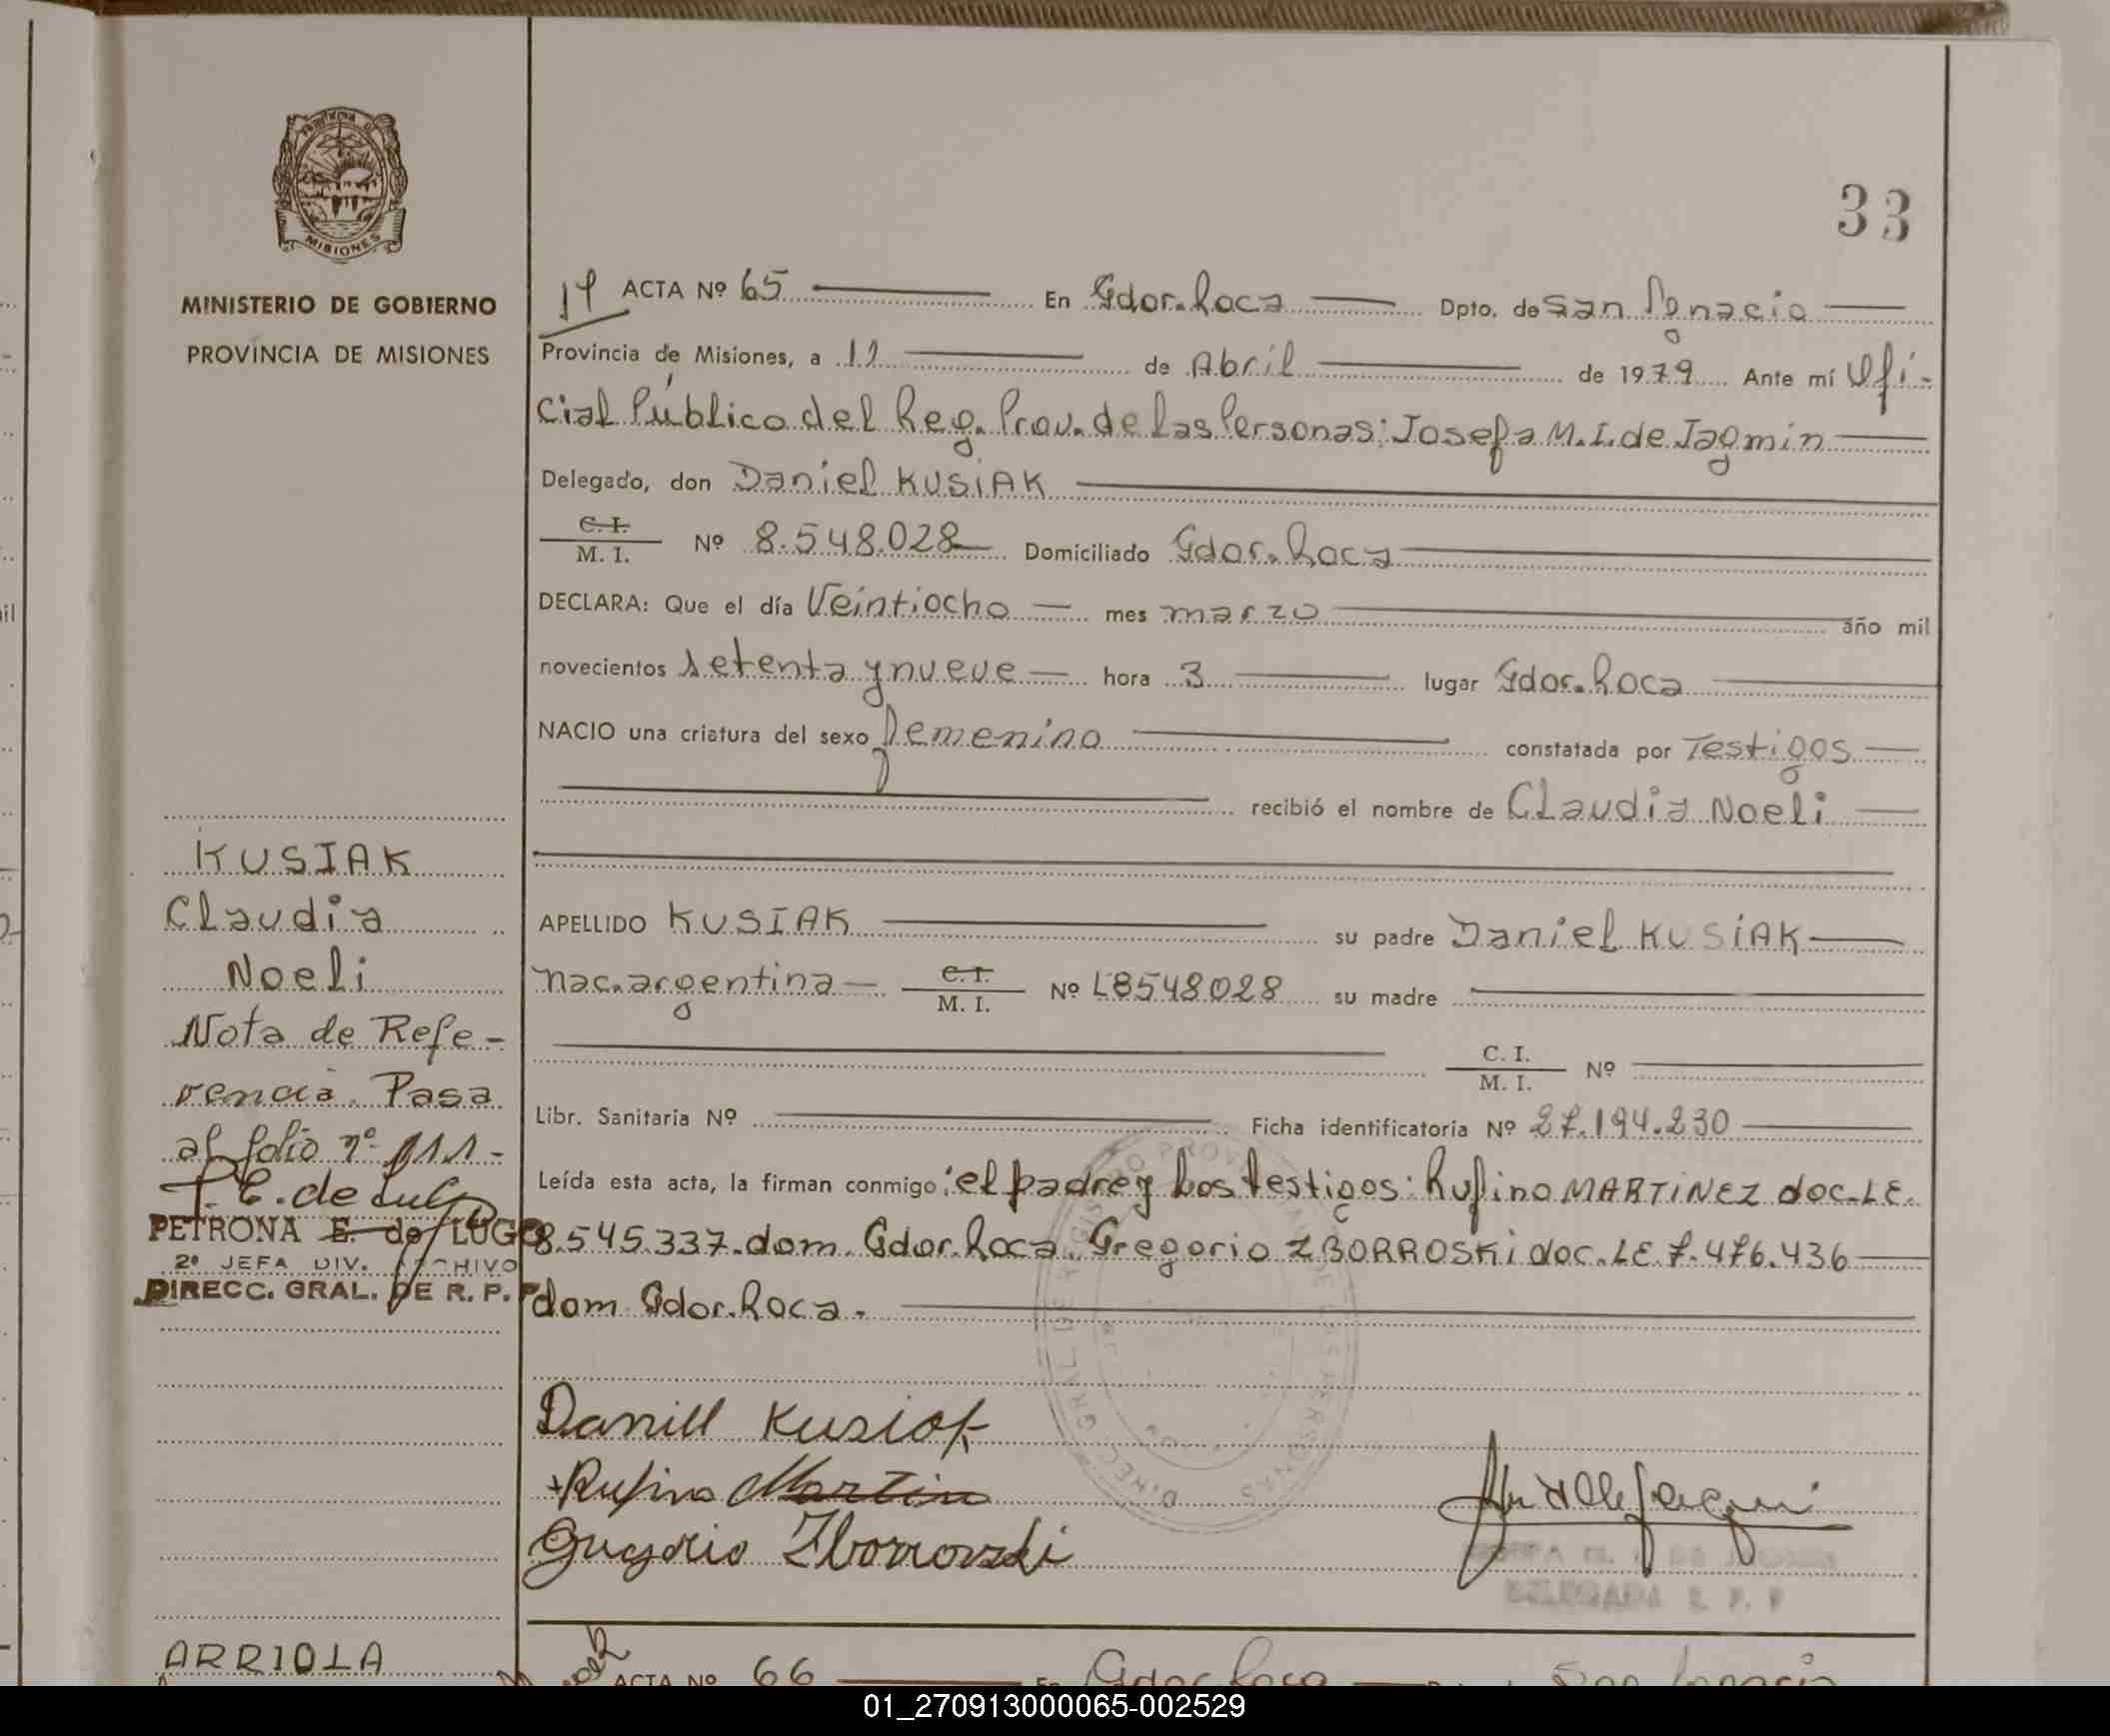 PROVINCIA DE
MISIONES
MINISTERIO DE GOBIERNO
PROVINCIA DE MISIONES
33
ACTA Nº 65 En Gdor. Roca Dpto. de San Ignacio
Provincia de Misiones, a 11 de Abril de 1979 Ante mí Ofi-
cial Público del Reg. Prov. de las Personas: Josefa M. I. de Jagmin
Delegado, don Daniel KUSIAK
C. I. / M. I. Nº 8.548.028 Domiciliado Gdor. Roca
DECLARA: Que el día Veintiocho mes marzo año mil
novecientos setenta y nueve hora 3 lugar Gdor. Roca
NACIO una criatura del sexo femenino constatada por Testigos
recibió el nombre de Claudia Noeli
APELLIDO KUSIAK su padre Daniel KUSIAK
nac. argentina C. I. / M. I. Nº L8548028 su madre
C. I. / M. I. Nº
Libr. Sanitaria Nº Ficha identificatoria Nº 27.194.230
Leída esta acta, la firman conmigo: el padre y los testigos: Rufino MARTINEZ doc. LE.
8.545.337. dom. Gdor. Roca. Gregorio ZBORROSKI doc. LE 7.476.436
dom Gdor. Roca.
KUSIAK
Claudia
Noeli
Nota de Refe-
rencia. Pasa
al folio nº 111-
P. E. de Lugo
PETRONA E. de LUGO
2ª JEFA DIV. ARCHIVO
DIRECC. GRAL. DE R. P. P
Daniel Kusiak
Rufino Martin
Gregorio Zborrowski
DIREC. GRAL. DE REGISTRO PROVINCIAL DE LAS PERSONAS
JOSEFA M. I. DE JAGMIN
DELEGADA R. P. P
ARRIOLA
ACTA Nº 66 En Gdor. Roca San Ignacio
01_270913000065-002529